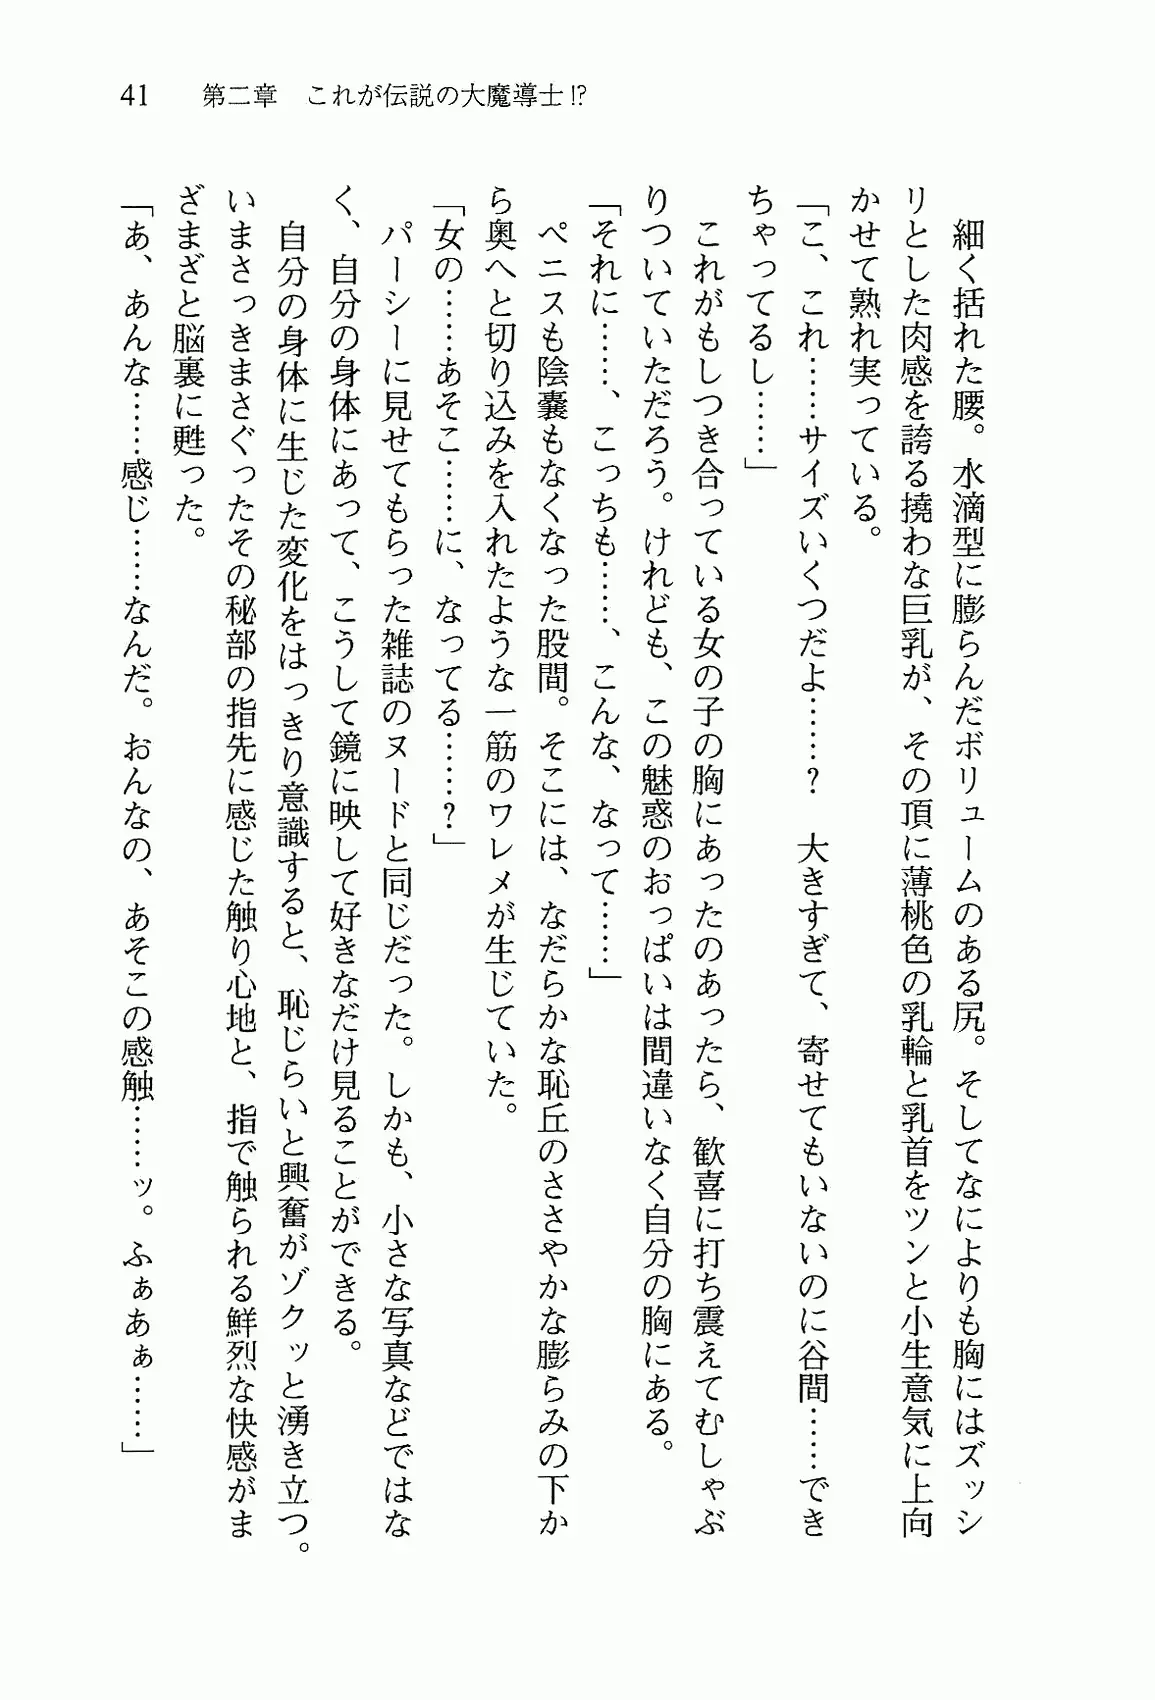 41　第二章　これが伝説の大魔導士!?
　細く括れた腰。水滴型に膨らんだボリュームのある尻。そしてなによりも胸にはズッシ
リとした肉感を誇る撓わな巨乳が、その頂に薄桃色の乳輪と乳首をツンと小生意気に上向
かせて熟れ実っている。
「こ、これ……サイズいくつだよ……？　大きすぎて、寄せてもいないのに谷間……でき
ちゃってるし……」
　これがもしつき合っている女の子の胸にあったのあったら、歓喜に打ち震えてむしゃぶ
りついていただろう。けれども、この魅惑のおっぱいは間違いなく自分の胸にある。
「それに……、こっちも……、こんな、なって……」
　ペニスも陰嚢もなくなった股間。そこには、なだらかな恥丘のささやかな膨らみの下か
ら奥へと切り込みを入れたような一筋のワレメが生じていた。
「女の……あそこ……に、なってる……？」
　パーシーに見せてもらった雑誌のヌードと同じだった。しかも、小さな写真などではな
く、自分の身体にあって、こうして鏡に映して好きなだけ見ることができる。
　自分の身体に生じた変化をはっきり意識すると、恥じらいと興奮がゾクッと湧き立つ。
いまさっきまさぐったその秘部の指先に感じた触り心地と、指で触られる鮮烈な快感がま
ざまざと脳裏に甦った。
「あ、あんな……感じ……なんだ。おんなの、あそこの感触……ッ。ふぁあぁ……」